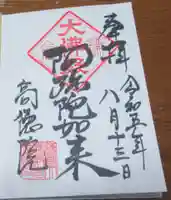 奉拝
令和五年
八月十三日
大佛殿
阿弥陀如来
高徳院